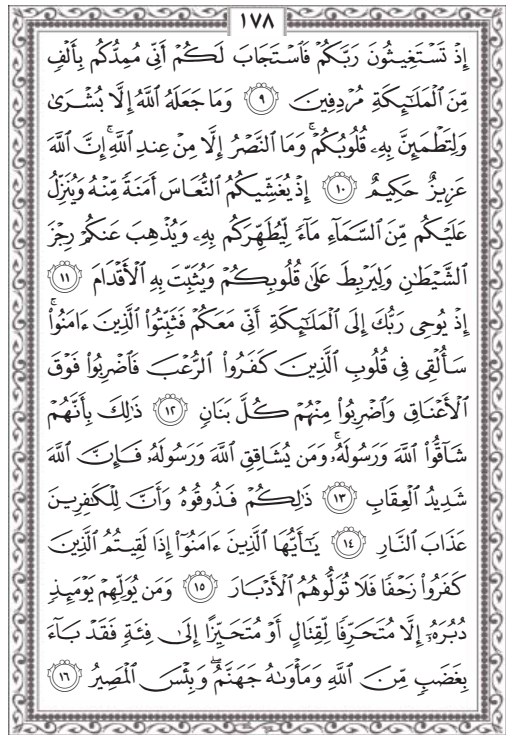 ١٧٨
إِذْ تَسْتَغِيثُونَ رَبَّكُمْ فَٱسْتَجَابَ لَكُمْ أَنِّى مُمِدُّكُم بِأَلْفٍ
مِّنَ ٱلْمَلَٰٓئِكَةِ مُرْدِفِينَ ٩ وَمَا جَعَلَهُ ٱللَّهُ إِلَّا بُشْرَىٰ
وَلِتَطْمَئِنَّ بِهِۦ قُلُوبُكُمْ ۚ وَمَا ٱلنَّصْرُ إِلَّا مِنْ عِندِ ٱللَّهِ ۚ إِنَّ ٱللَّهَ
عَزِيزٌ حَكِيمٌ ١٠ إِذْ يُغَشِّيكُمُ ٱلنُّعَاسَ أَمَنَةً مِّنْهُ وَيُنَزِّلُ
عَلَيْكُم مِّنَ ٱلسَّمَآءِ مَآءً لِّيُطَهِّرَكُم بِهِۦ وَيُذْهِبَ عَنكُمْ رِجْزَ
ٱلشَّيْطَٰنِ وَلِيَرْبِطَ عَلَىٰ قُلُوبِكُمْ وَيُثَبِّتَ بِهِ ٱلْأَقْدَامَ ١١
إِذْ يُوحِى رَبُّكَ إِلَى ٱلْمَلَٰٓئِكَةِ أَنِّى مَعَكُمْ فَثَبِّتُوا۟ ٱلَّذِينَ ءَامَنُوا۟ ۚ
سَأُلْقِى فِى قُلُوبِ ٱلَّذِينَ كَفَرُوا۟ ٱلرُّعْبَ فَٱضْرِبُوا۟ فَوْقَ
ٱلْأَعْنَاقِ وَٱضْرِبُوا۟ مِنْهُمْ كُلَّ بَنَانٍ ١٢ ذَٰلِكَ بِأَنَّهُمْ
شَآقُّوا۟ ٱللَّهَ وَرَسُولَهُۥ ۚ وَمَن يُشَاقِقِ ٱللَّهَ وَرَسُولَهُۥ فَإِنَّ ٱللَّهَ
شَدِيدُ ٱلْعِقَابِ ١٣ ذَٰلِكُمْ فَذُوقُوهُ وَأَنَّ لِلْكَٰفِرِينَ
عَذَابَ ٱلنَّارِ ١٤ يَٰٓأَيُّهَا ٱلَّذِينَ ءَامَنُوٓا۟ إِذَا لَقِيتُمُ ٱلَّذِينَ
كَفَرُوا۟ زَحْفًا فَلَا تُوَلُّوهُمُ ٱلْأَدْبَارَ ١٥ وَمَن يُوَلِّهِمْ يَوْمَئِذٍ
دُبُرَهُۥٓ إِلَّا مُتَحَرِّفًا لِّقِتَالٍ أَوْ مُتَحَيِّزًا إِلَىٰ فِئَةٍ فَقَدْ بَآءَ
بِغَضَبٍ مِّنَ ٱللَّهِ وَمَأْوَىٰهُ جَهَنَّمُ ۖ وَبِئْسَ ٱلْمَصِيرُ ١٦